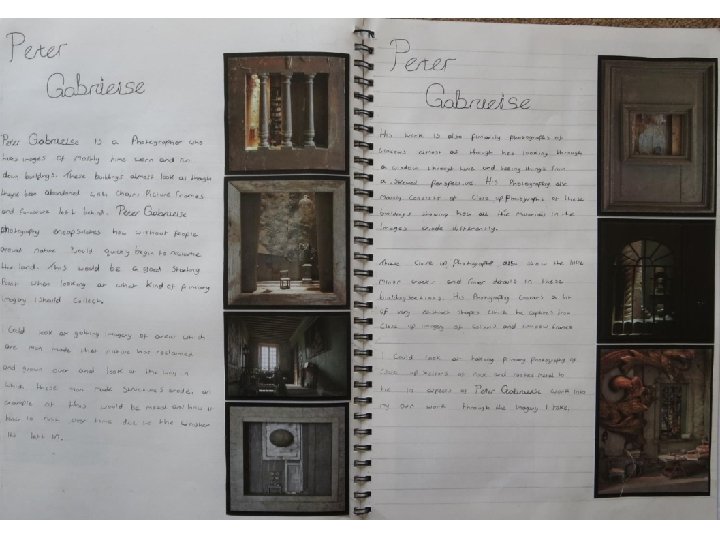 Peter
Gabrielse
Peter Gabrielse is a Photographer who
takes images of mostly time worn and run
down buildings. These buildings almost look as though
they've been abandoned with chairs, Picture Frames
and furniture left behind. Peter Gabrielse
photography encapsulates how without people
around nature would quickly begin to reclaim
the land. This would be a good starting
Point when looking at what kind of primary
imagery I should collect.
I could look at getting imagery of areas which
are man made that nature has reclaimed
and grown over and look at the way in
which these man made structures erode, an
example of this would be metal and how it
has to rust over time due to the weather
its left in.
Peter
Gabrielse
His work is also primarily photographs of
windows almost as though hes looking through
a window through time and seeing things from
a different perspective. His Photography also
mainly consists of close up Photographs of these
buildings showing how all the materials in the
images erode differently.
These close up Photographs also show the little
minor cracks and finer details in these
buildings. His Photography consists a lot
of very abstract shapes which he captures from
close up imagery of and window frames
I could look at taking primary photography of
close up sections of rock and rusted metal to
tie in aspects of Peter Gabrielse work into
my own work through the imagery I take.